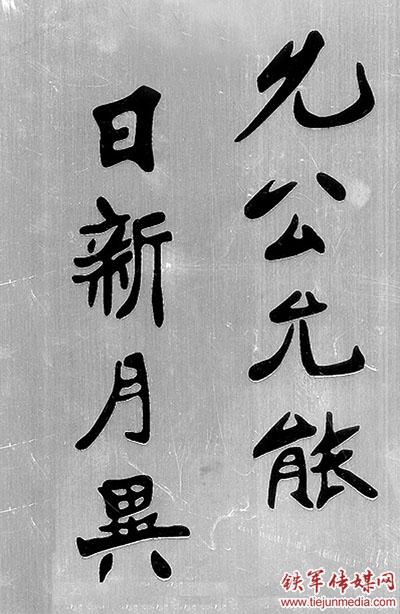 允公允能
日新月異
铁军传媒网
www.tiejunmedia.com